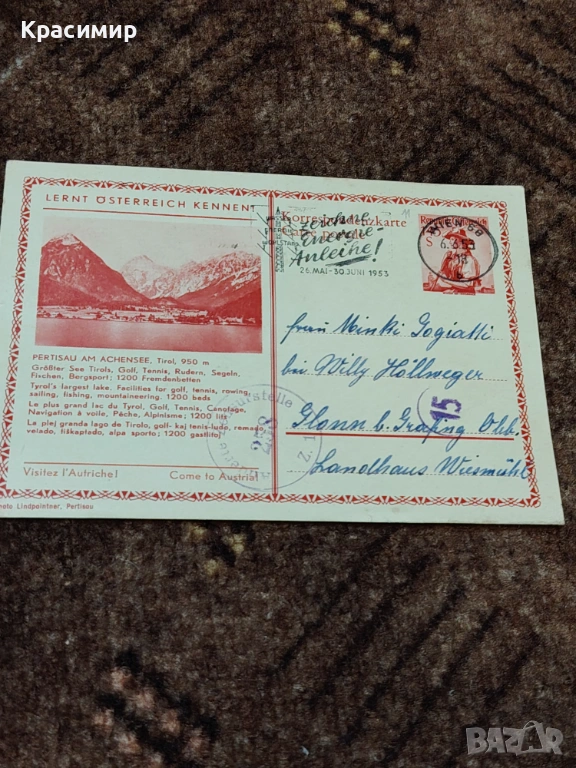 Красимир
LERNT ÖSTERREICH KENNEN
Korrespondenzkarte
Energie-
Anleihe!
26. MAI - 30. JUNI 1953
WIEN 68
6.6.53
PERTISAU AM ACHENSEE, Tirol, 950 m
Größter See Tirols, Golf, Tennis, Rudern, Segeln,
Fischen, Bergsport; 1200 Fremdenbetten
Tyrol's largest lake. Facilities for golf, tennis, rowing,
sailing, fishing, mountaineering. 1200 beds
Le plus grand lac du Tyrol, Golf, Tennis, Canotage,
Navigation à voile, Pêche, Alpinisme; 1200 lits
La plej granda lago de Tirolo, golf- kaj tenis-ludo, remado,
velado, fiŝkaptado, alpa sporto; 1200 gastlitoj
Visitez l'Autriche! Come to Austria!
Lindpointner, Pertisau
Frau Minki Gogiatti
bei Willy Höllweger
15
Glonn b. Grafing Obb.
Landhaus Wiesmühl
258
Z. 1
BAZAR